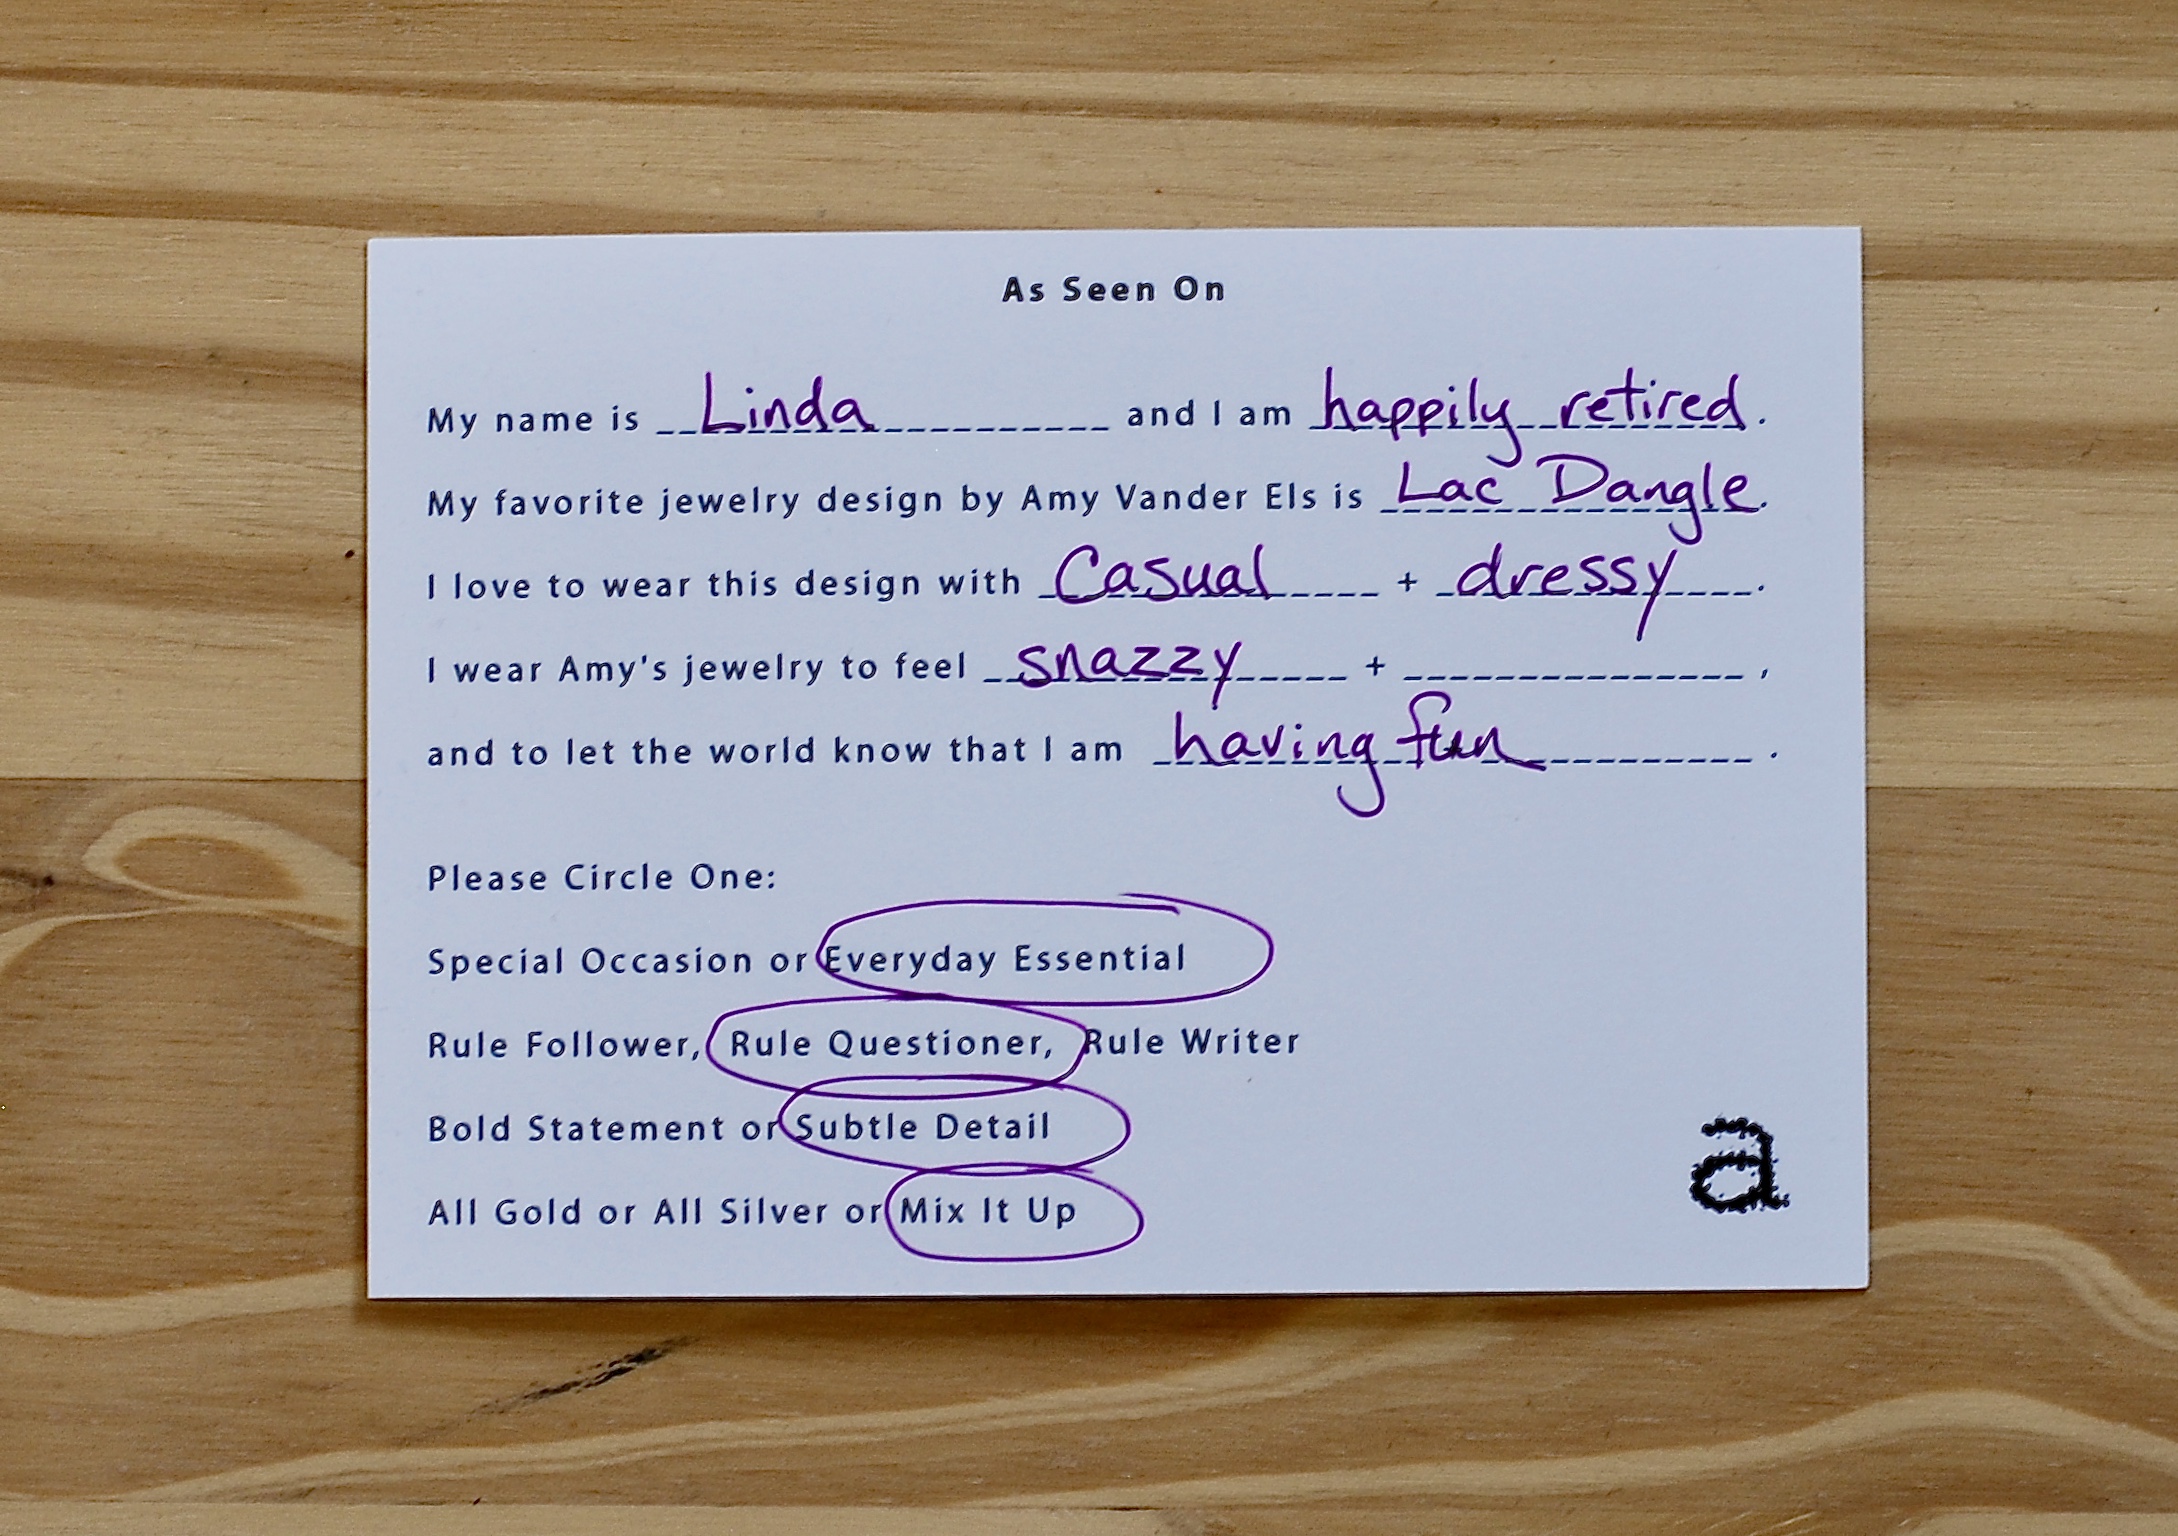 As Seen On
My name is Linda and I am happily retired.
My favorite jewelry design by Amy Vander Els is Lac Dangle.
I love to wear this design with Casual + dressy.
I wear Amy's jewelry to feel snazzy + ,
and to let the world know that I am having fun.
Please Circle One:
Special Occasion or Everyday Essential
Rule Follower, Rule Questioner, Rule Writer
Bold Statement or Subtle Detail
All Gold or All Silver or Mix It Up
a